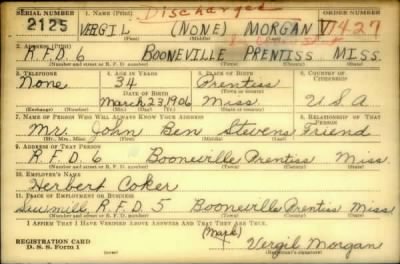 SERIAL NUMBER 1. NAME (Print) Discharged ORDER NUMBER
2125 VERGIL (NONE) MORGAN V7427
(First) (Middle) (Last)
2. ADDRESS (Print)
R.F.D. 6 BOONEVILLE PRENTISS MISS.
(Number and street or R. F. D. number) (Town) (County) (State)
3. TELEPHONE 4. AGE IN YEARS 5. PLACE OF BIRTH 6. COUNTRY OF CITIZENSHIP
None 34 Prentiss
DATE OF BIRTH (Town or county)
March 23, 1906 Miss. U.S.A
(Exchange) (Number) (Mo.) (Day) (Yr.) (State or country)
7. NAME OF PERSON WHO WILL ALWAYS KNOW YOUR ADDRESS 8. RELATIONSHIP OF THAT PERSON
Mr. John Ben Stevens Friend
(Mr., Mrs., Miss) (First) (Middle) (Last)
9. ADDRESS OF THAT PERSON
R.F.D. 6 Booneville Prentiss Miss.
(Number and street or R. F. D. number) (Town) (County) (State)
10. EMPLOYER'S NAME
Herbert Coker
11. PLACE OF EMPLOYMENT OR BUSINESS
Sawmill, R.F.D. 5 Booneville Prentiss Miss
(Number and street or R. F. D. number) (Town) (County) (State)
I AFFIRM THAT I HAVE VERIFIED ABOVE ANSWERS AND THAT THEY ARE TRUE.
(Mark)
REGISTRATION CARD
D. S. S. Form 1 Vergil Morgan